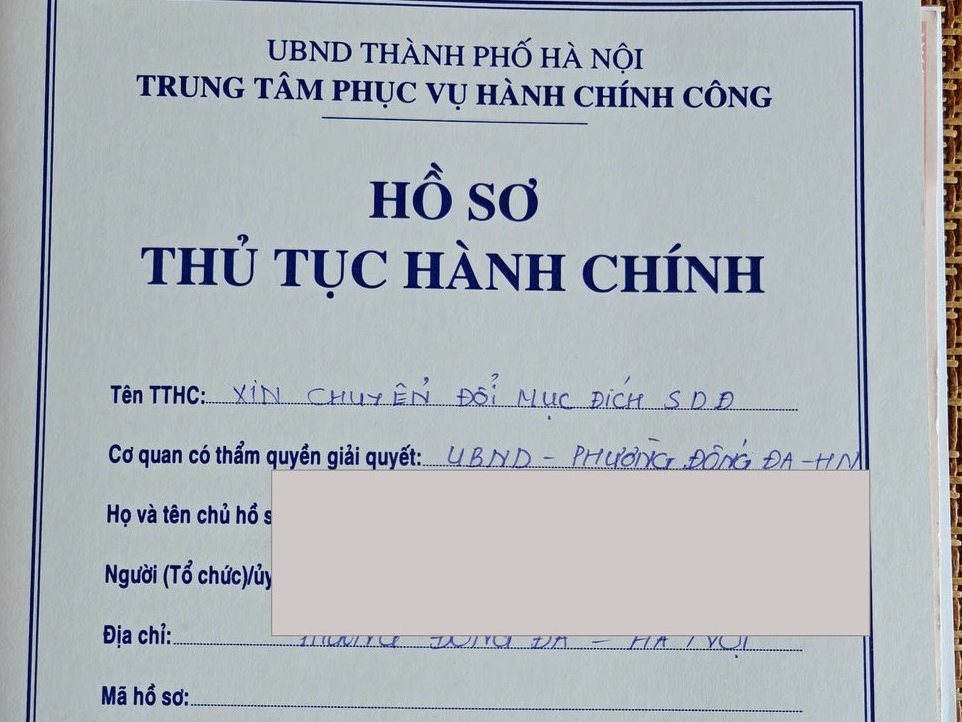 UBND THÀNH PHỐ HÀ NỘI
TRUNG TÂM PHỤC VỤ HÀNH CHÍNH CÔNG
HỒ SƠ
THỦ TỤC HÀNH CHÍNH
Tên TTHC: XIN CHUYỂN ĐỔI MỤC ĐÍCH SDĐ
Cơ quan có thẩm quyền giải quyết: UBND - PHƯỜNG ĐỐNG ĐA - HN
Họ và tên chủ hồ s
Người (Tổ chức)/ủy
Địa chỉ: PHƯỜNG ĐỐNG ĐA - HÀ NỘI
Mã hồ sơ: